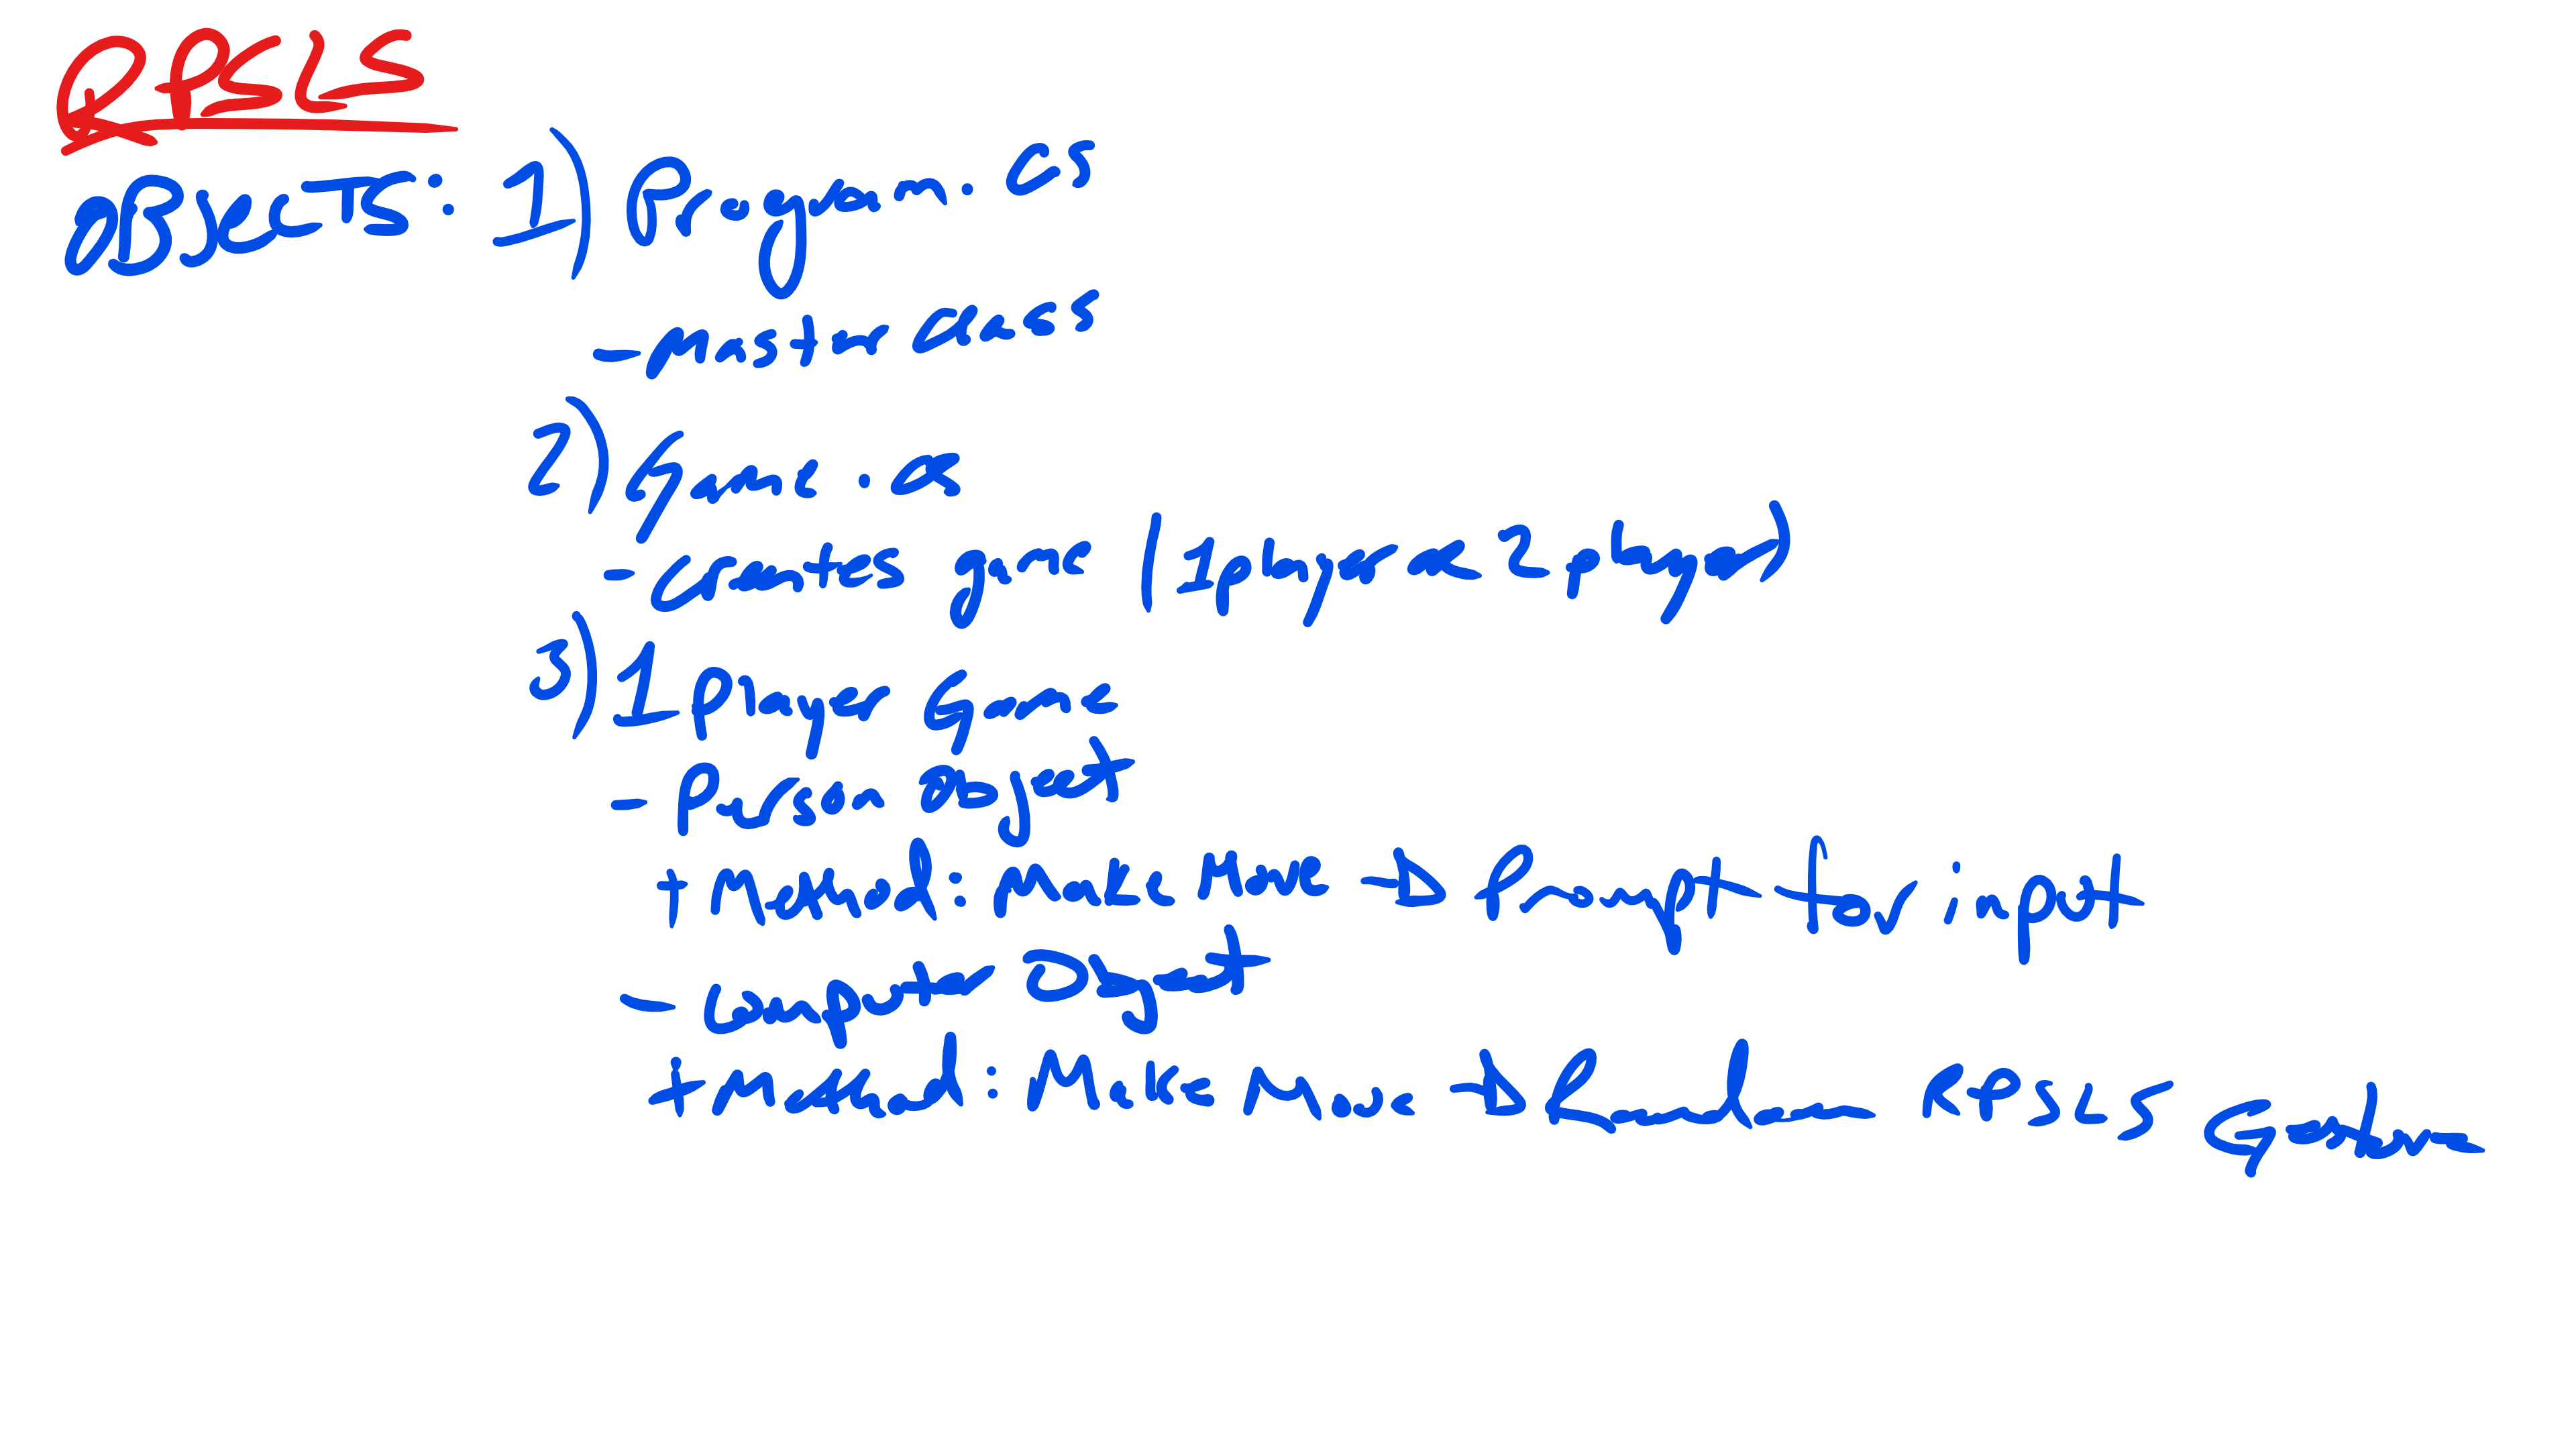 RPSLS
OBJECTS: 1) Program.cs
- Master class
2) Game.cs
- Creates game (1 player or 2 player)
3) 1 Player Game
- Person Object
+ Method: Make Move → Prompt for input
- Computer Object
+ Method: Make Move → Random RPSLS Gesture